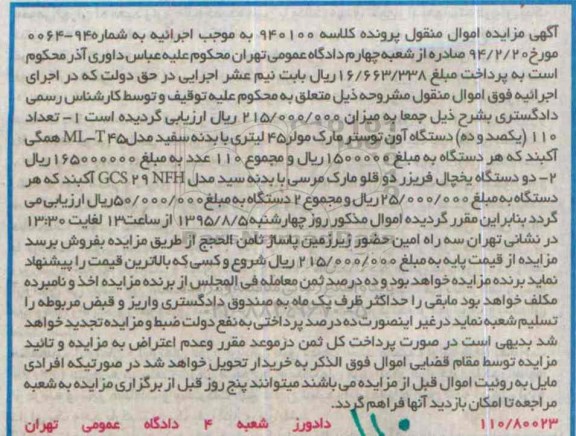 آگهی مزایده اموال منقول پرونده کلاسه ۹۴۰۱۰۰ به موجب اجرائیه به شماره۹۴-۰۰۶۴
مورخ۹۴/۲/۲۰ صادره از شعبه چهارم دادگاه عمومی تهران محکوم علیه عباس داوری آذر محکوم
است به پرداخت مبلغ ۱۶/۶۶۳/۳۳۸ ریال بابت نیم عشر اجرایی در حق دولت که در اجرای
اجرائیه فوق اموال منقول مشروحه ذیل متعلق به محکوم علیه توقیف و توسط کارشناس رسمی
دادگستری بشرح ذیل جمعا به میزان ۲۱۵/۰۰۰/۰۰۰ ریال ارزیابی گردیده است ۱- تعداد
۱۱۰ (یکصد و ده) دستگاه آون توستر مارک مولر۴۵ لیتری با بدنه سفید مدل ML-T۴۵ همگی
آکبند که هر دستگاه به مبلغ ۱۵۰۰۰۰۰ ریال و مجموع ۱۱۰ عدد به مبلغ ۱۶۵۰۰۰۰۰۰ ریال
۲- دو دستگاه یخچال فریزر دو قلو مارک مرسی با بدنه سید مدل GCS ۲۹ NFH آکبند که هر
دستگاه به مبلغ ۲۵/۰۰۰/۰۰۰ ریال و مجموع ۲ دستگاه به مبلغ ۵۰/۰۰۰/۰۰۰ ریال ارزیابی می
گردد بنابراین مقرر گردیده اموال مذکور روز چهارشنبه ۱۳۹۵/۸/۵ از ساعت ۱۳ لغایت ۱۳:۳۰
در نشانی تهران سه راه امین حضور زیرزمین پاساژ ثامن الحجج از طریق مزایده بفروش برسد
مزایده از قیمت پایه به مبلغ ۲۱۵/۰۰۰/۰۰۰ ریال شروع و کسی که بالاترین قیمت را پیشنهاد
نماید برنده مزایده خواهد بود و ده درصد ثمن معامله فی المجلس از برنده مزایده اخذ و نامبرده
مکلف خواهد بود مابقی را حداکثر ظرف یک ماه به صندوق دادگستری واریز و قبض مربوطه را
تسلیم شعبه نماید در غیر اینصورت ده درصد پرداختی به نفع دولت ضبط و مزایده تجدید خواهد
شد بدیهی است در صورت پرداخت کل ثمن در موعد مقرر وعدم اعتراض به مزایده و تائید
مزایده توسط مقام قضایی اموال فوق الذکر به خریدار تحویل خواهد شد در صورتیکه افرادی
مایل به رویت اموال قبل از مزایده می باشند میتوانند پنج روز قبل از برگزاری مزایده به شعبه
مراجعه تا امکان بازدید آنها فراهم گردد.
۱۱۰/۸۰۰۲۳ دادورز شعبه ۴ دادگاه عمومی تهران
۱۱۰